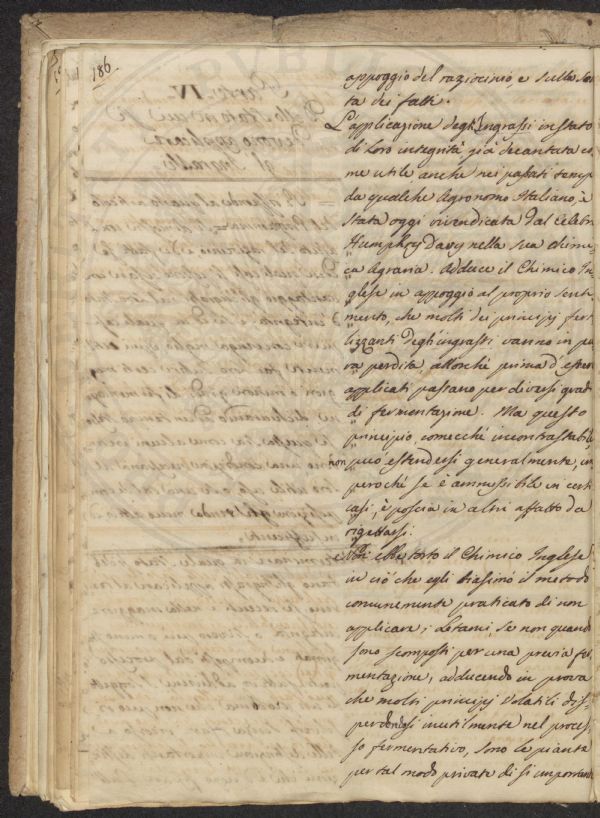 186.
appoggio del raziocinio, e sulla scor-
ta dei fatti.
L'applicazione degl'Ingrassi in stato
di loro integrità, già decantata co-
me utile anche nei passati tempi
da qualche Agronomo Italiano, è
stata oggi rivendicata dal celebre
Humphry Davy nella sua chimi-
ca Agraria. Adduce il Chimico In-
glese in appoggio al proprio senti-
mento, che molti dei principj fert
lizzanti degl'ingrassi vanno in pu
ra perdita, allorché prima d'essere
applicati passano per diversi gradi
di fermentazione. Ma questo
principio, comecché incontrastabile
non può estendersi generalmente, im
perochè se è ammissibile in certi
casi, è poscia in altri affatto da
rigettarsi.
Non ebbe torto il Chimico Inglese
in ciò che egli biasimò il metodo
comunemente praticato di non
applicare i Letami, se non quando
sono scomposti per una previa fer
mentazione, adducendo in prova
che molti principj volatili dis-
perdendosi inutilmente nel proces
so fermentativo, sono le piante
per tal modo private di sì importante